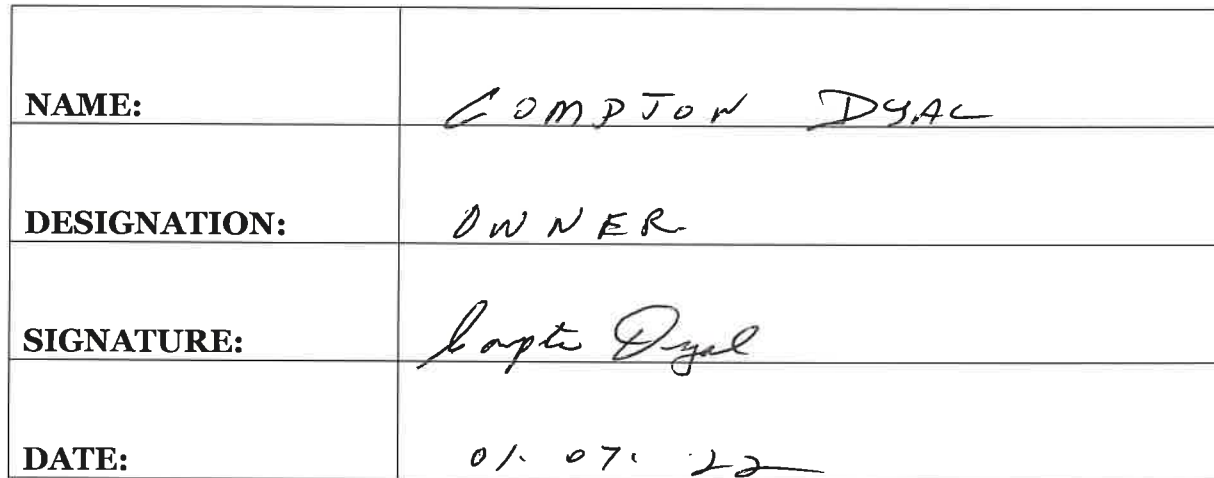 NAME: COMPTON DYAL
DESIGNATION: OWNER
SIGNATURE: Compton Dyal
DATE: 01.07.22